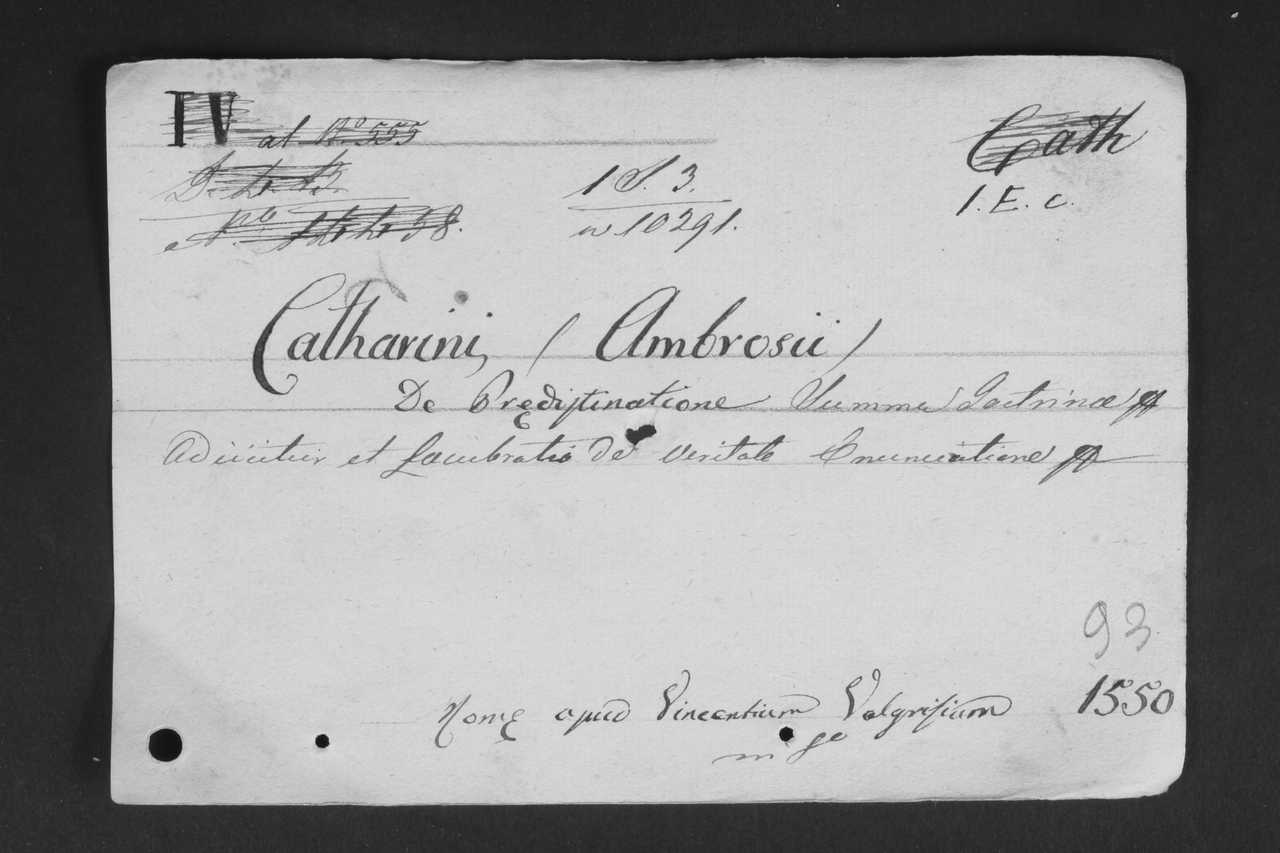 IV at N° 555
Cath
1 S. 3.
w 10291.
1. E. c.
Catharini, (Ambrosii)
De Prędistinatione Summa Doctrinæ
Adiicitur et Lucubratio De veritate Enunciatione
93
Romę apud Vincentium Valgrisium 1550
in 8º